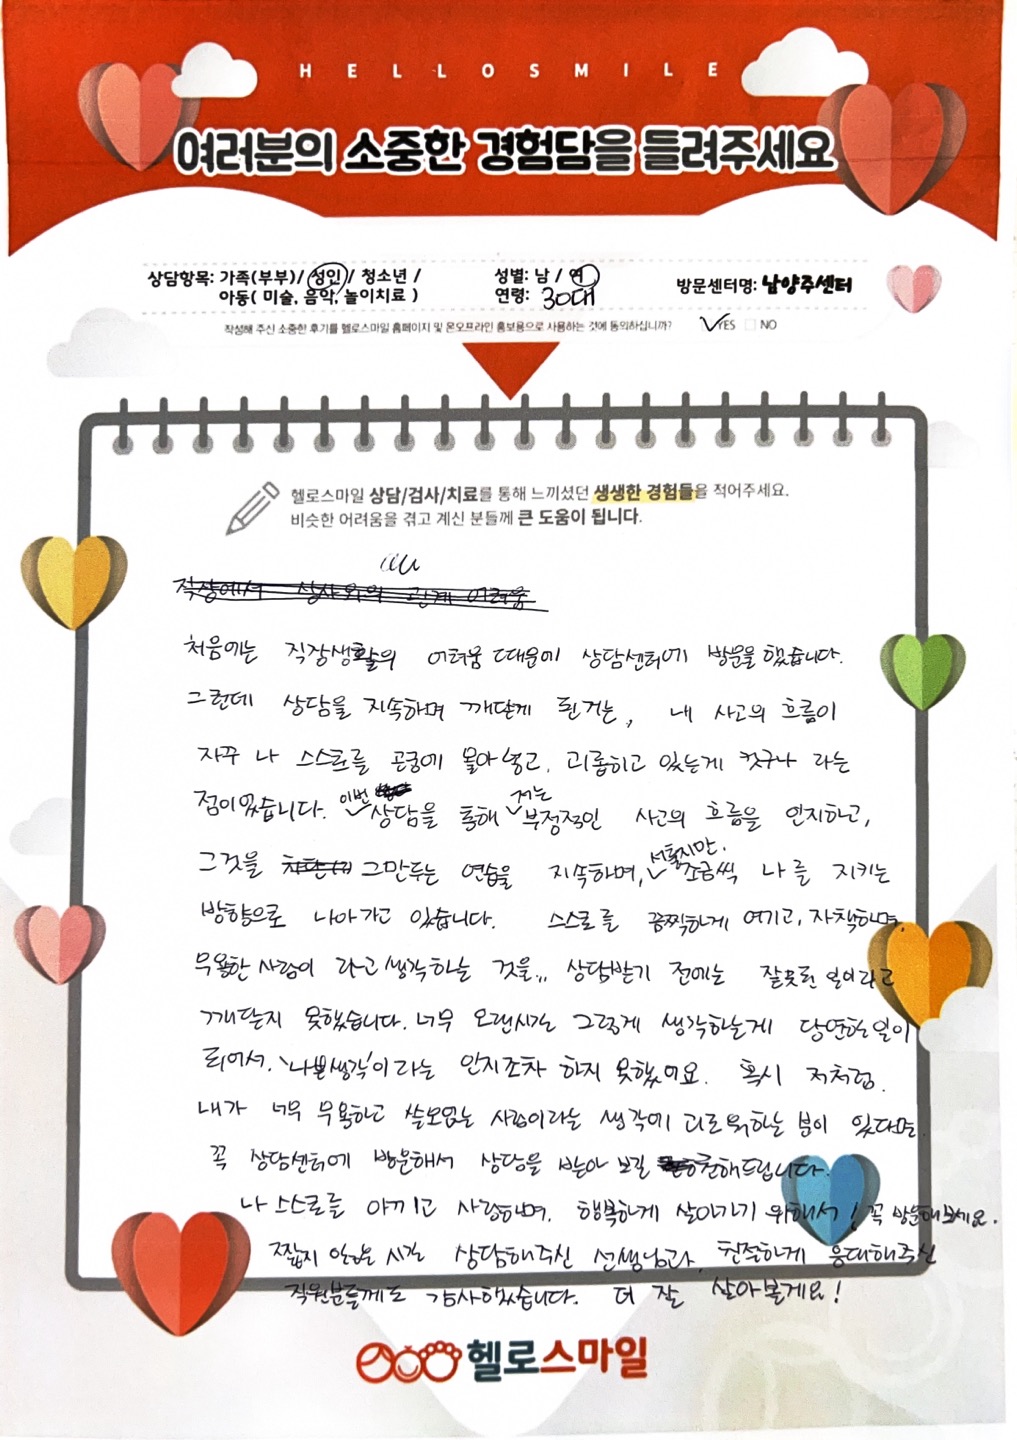 HELLOSMILE
여러분의 소중한 경험담을 들려주세요
상담항목: 가족(부부)/ 성인 / 청소년 /
아동( 미술, 음악, 놀이치료 )
성별: 남 / 여
연령: 30대
방문센터명: 남양주센터
작성해 주신 소중한 후기를 헬로스마일 홈페이지 및 온오프라인 홍보용으로 사용하는 것에 동의하십니까? YES NO
헬로스마일 상담/검사/치료를 통해 느끼셨던 생생한 경험들을 적어주세요.
비슷한 어려움을 겪고 계신 분들께 큰 도움이 됩니다.
직장에서 상사와의 관계 어려움
처음에는 직장생활의 어려움 때문에 상담센터에 방문을 했습니다.
그런데 상담을 지속하며 깨닫게 된거는, 내 사고의 흐름이
자꾸 나 스스로를 곤궁에 몰아넣고, 괴롭히고 있는게 컸구나 라는
점이었습니다. 이번 상담을 통해 저는 부정적인 사고의 흐름을 인지하고,
그것을 그만두는 연습을 지속하며, 서툴지만, 조금씩 나를 지키는
방향으로 나아가고 있습니다. 스스로를 끔찍하게 여기고, 자책하며,
무용한 사람이 라고 생각하는 것을.. 상담받기 전에는 잘못된 일이라고
깨닫지 못했습니다. 너무 오랜시간 그렇게 생각하는게 당연한 일이
되어서. '나쁜생각'이라는 인지조차 하지 못했어요. 혹시 저처럼.
내가 너무 무용하고 쓸모없는 사람이라는 생각에 괴로워하는 분이 있다면.
꼭 상담센터에 방문해서 상담을 받아 보길 추천해드립니다.
나 스스로를 아끼고 사랑하며, 행복하게 살아가기 위해서! 꼭 방문해보세요.
짧지 않은 시간 상담해주신 선생님과, 친절하게 응대해주신
직원분들께도 감사했습니다. 더 잘 살아볼게요!
헬로스마일